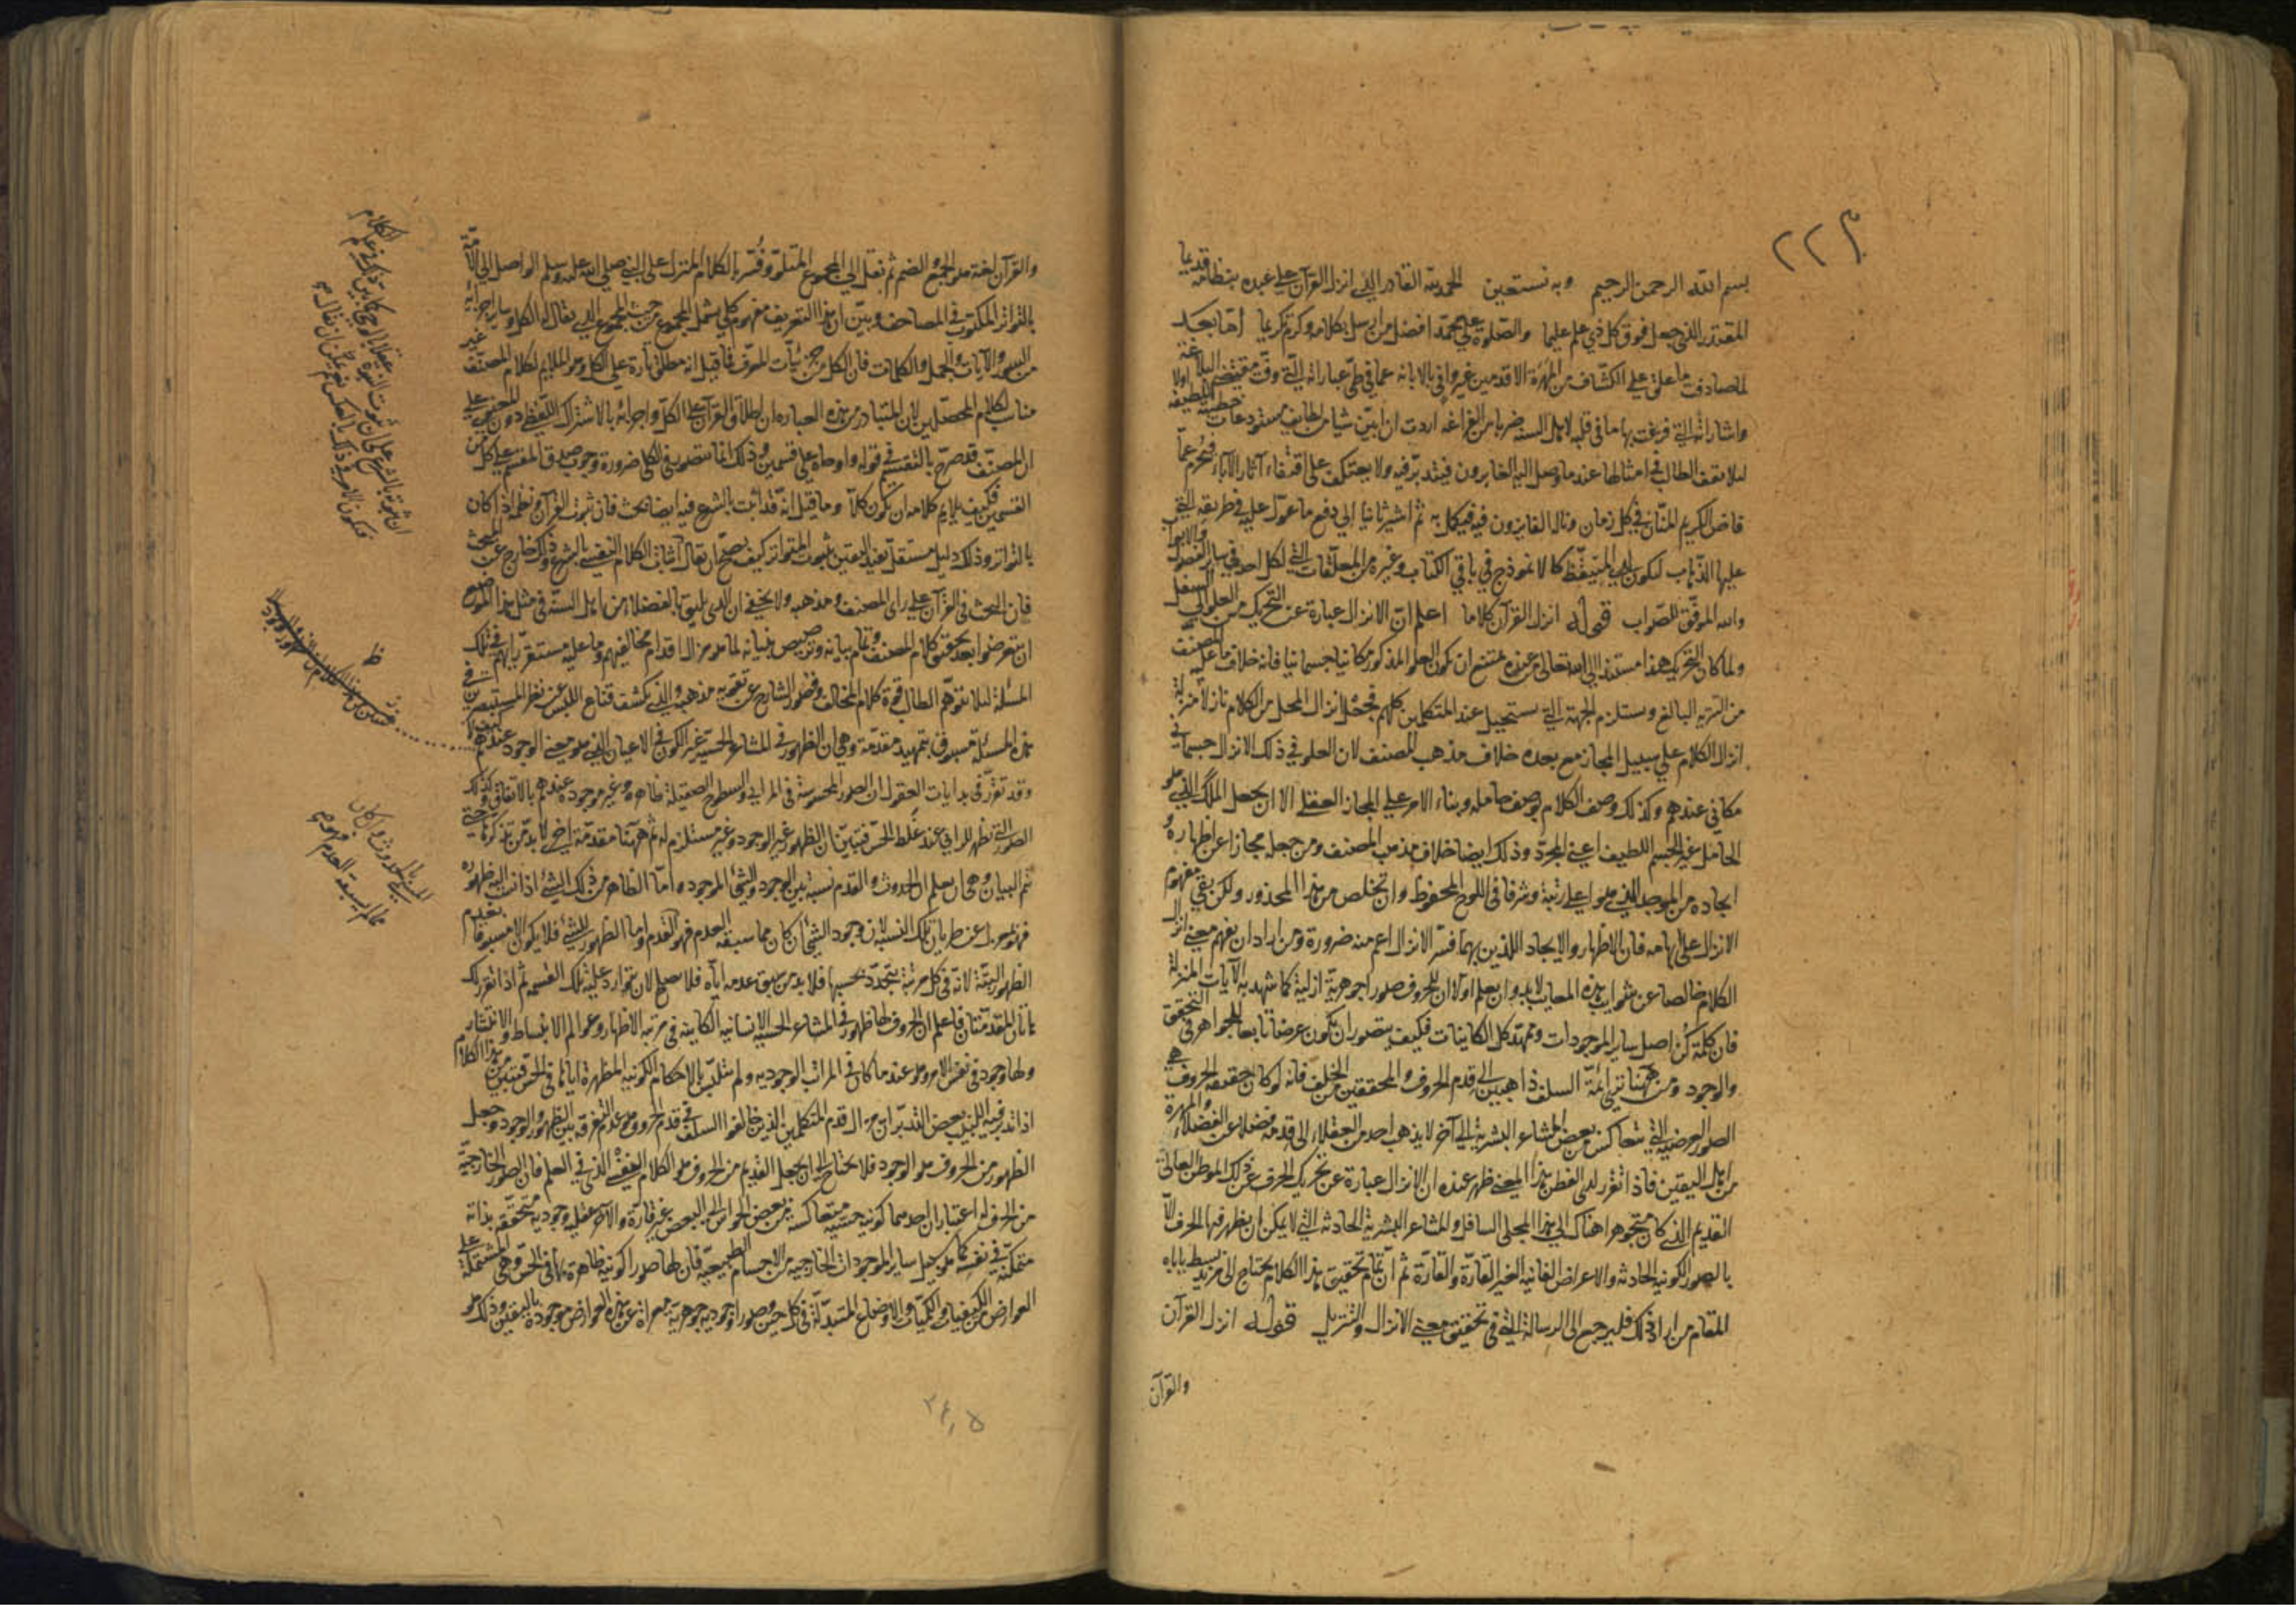 ٢٢م
بسم الله الرحمن الرحيم وبه نستعين الحمد لله القادر الذي انزل القرآن على عبده بنظامه قديما
المقتدر الذي جعل فوق كل ذي علم عليما والصلوة على محمد افضل من ارسل بكلامه وكرم تكريما أما بعد
لما صادفت ما علق على الكشاف من المهرة الاقدمين غير وافي بالابانه عما في طي عباراته التي وفت مقتضى البلاغة
واشاراته التي فرغت بها ما في قلبه لاهل السنه ضربا من الفراغه اردت ان ابين شيا من لطايف مستودعات
لئلا يقف الطالب في امثالها عند ما وصل اليه الغابرون فيتدبر فيه ولا يعتكف على اقتفاء آثار الآباء فيحرم عما
فاض الكريم المنان في كل زمان ونال الفايزون فيه فيكمل به ثم اشير ثانيا الى دفع ما عول عليه في طريقه التي
عليها الذهاب ليكون للمتيقظ كالانموذج في باقي الكتاب وغيره من المعلقات التي لكل احد في ساير الفصول والابواب
والله الموفق للصواب قوله انزل القرآن كلاما اعلم ان الانزال عبارة عن التحريك من العلو الى السفل
ولما كان التحريك هذا مستندا الى الله تعالى من عنده يمتنع ان يكون العلو المذكور مكانيا جسمانيا فانه خلاف ما عليه المصنف
من التنزيه البالغ ويستلزم الجهة التي يستحيل عند المتكلمين كلهم فجعل انزال المحل من الكلام نازلا منزلة
انزال الكلام على سبيل المجاز مع بعده خلاف مذهب المصنف لان العلو في ذلك الانزال جسماني
مكاني عندهم وكذلك وصف الكلام بوصف حامله وبناء الامر على المجاز العقلي الا ان يجعل الملك الذي هو
الحامل غير الجسم اللطيف اعني المجرد وذلك ايضا خلاف مذهب المصنف ومن جعله مجازا عن اظهاره و
ايجاده من الموجد الذي هو اعلى رتبة وشرفا في اللوح المحفوظ وان تخلص من هذا المحذور ولكن بقي مفهوم
الانزال على ابهامه فان الاظهار والايجاد اللذين بهما فسر الانزال اعم منه ضرورة ومن اراد ان يفهم معنى انزال
الكلام خالصا عن شوايب هذه المعايب لا بد وان يعلم اولا ان للحروف صورا جوهرية ازلية كما شهد به الآيات المنزلة
فان كلمة كن اصل ساير الموجودات وممهد كل الكاينات فكيف يتصور ان يكون عرضا تابعا للجواهر في التحقق
والوجود ومن ههنا ترى ائمة السلف ذاهبين الى قدم الحروف والمحققين من الخلف فانه لو كان حقيقة الحروف هي
الصور العرضية التي تتعاكس من بعض المشاعر البشرية الى آخر لا يذهب احد من العقلاء الى قدمه فضلا عن الفضلاء والمهرة
من اهل اليقين فاذا تقرر لدى الفطن هذا المعنى ظهر عنده ان الانزال عبارة عن تحريك الحرف عن ذلك الموطن العالي
القديم الذي كان متجوهرا هناك الى هذا المجلى السافل والمشاعر البشرية الحادثه التي لا يمكن ان يظهر فيها الحرف الا
بالصور الكونيه الحادثه والاعراض الفانيه الغير القارة والقارة ثم ان تمام تحقيق هذا الكلام يحتاج الى مزيد بسط ياباه
المقام من اراد ذلك فليرجع الى الرسالة التي في تحقيق معنى الانزال والتنزيل قوله انزل القرآن
والقرآن
والقرآن لغة هو الجمع والضم ثم نقل الى المجموع المتلو وفسر بالكلام المنزل على النبي صلى الله عليه وسلم الواصل الى الامة
بالتواتر المكتوب في المصاحف وبين ان هذا التعريف مفهوم كلي يشمل المجموع من حيث المجموع الذي يقال له الكل وساير اجزائه
من السور والآيات والجمل والكلمات فان الكل من جزئيات المعرف فما قيل انه مطلق تارة على الكل وهو الملايم لكلام المصنف غير
مناسب لكلام المحصلين لان المتبادر من هذه العبارة ان اطلاق القرآن على الكل واجزائه بالاشتراك اللفظي دون المعنوي على
ان المصنف قد صرح بالتقسيم في قوله واوحاه على قسمين وذلك انما يتصور في الكلي ضرورة وجوب صدق المقسم على كل من
القسمين فكيف يلايم كلامه ان يكون كلا وما قيل انه قد اثبت بالشرع فيه ايضا بحث فان ثبوت القرآن ونظمه اذا كان
بالتواتر وذلك دليل مستقل يفيد اليقين بثبوت المتواتر كيف يصح ان يقال اثبات الكلام النفسي بالشرع وذلك خارج عن المبحث
فان البحث في القرآن على راى المصنف ومذهبه ولا يخفى ان الذي يليق بالفضلاء من اهل السنة في مثل هذا الموضع
ان يتعرضوا بعد تحقيق كلام المصنف وتمام بيانه وترصيص بنيانه لما هو مزال اقدام مخالفيهم وما عليه مستقر رايهم في تلك
المسئلة لئلا يتوهم الطالب قوة كلام المخالف وقصور الشارح عن تقويم مذهبه والذي يكشف قناع اللبس عن نظر المستبصرين في
هذه المسئلة مسبوق بتمهيد مقدمة وهي ان الظهور في المشاعر الحسية غير الكون في الاعيان الذي هو معنى الوجود عندهم
وقد تقرر في بدايات العقول ان الصور المحسوسة في المرايا والسطوح الصقيلة ظاهره وغير موجوده عندهم بالاتفاق وكذلك
الصور التي تظهر للرائي عند غلط الحس فتبين ان الظهور غير الوجود وغير مستلزم له ثم ههنا مقدمة اخرى لا بد من تذكرها حتى
يتم البيان وهي ان يعلم ان الحدوث والقدم نسبة بين الوجود والشئ الموجود واما الظاهر من ذلك الشئ اذا نسب اليه ظهوره
فهو بمعزل عن طريان تلك النسبة لان وجود الشئ ان كان مما سبقه العدم فهو القدم واما الظهور للشئ فلا يكون الا مسبوقا بعدم
الظهور البتة لانه في كل مرتبة يتجدد بحسبها فلا بد من سبق عدمه اياه فلا يصلح لان يتوارد عليه تلك القسمة ثم اذا تقرر لك
هاتان المقدمتان فاعلم ان الحروف لها ظهور في المشاعر الحسية الانسانية الكاينة في مرتبة الاظهار وعوالم الانبساط والانتشار
ولها وجود في نفس الامر وهو عند ما كان في المراتب الوجوديه ولم يتلبس بالاحكام الكونية المظهرة اياها في الحس فتبين من هذا الكلام
اذا تدبر فيه اللبيب بعض التدبر ان مزال قدم المتكلمين الذين خالفوا السلف في قدم الحروف هو عدم التفرقة بين الظهور والوجود وجعل
الظهور من الحروف هو الوجود فلا يحتاج الى ان يجعل القديم من الحروف هو الكلام النفسي الذي في العلم فان الصور الخارجية
من الحرف له اعتباران احدهما كونية حسيه متعاكسه من بعض الحواس الى البعض غير قارة والآخر عقليه وجوديه متحققه بذاته
متمكنه في نفسه كما هو سبيل ساير الموجودات الخارجيه من الاجسام الطبيعية فان لها صورا كونية ظاهرة بها في الحس وهي المشتملة على
العوارض من الكيفيات والكميات والاوضاع المتبدلة في كل حين وصورا وجودية جوهرية معراة عن هذه العوارض موجودة باليقين وذلك هو